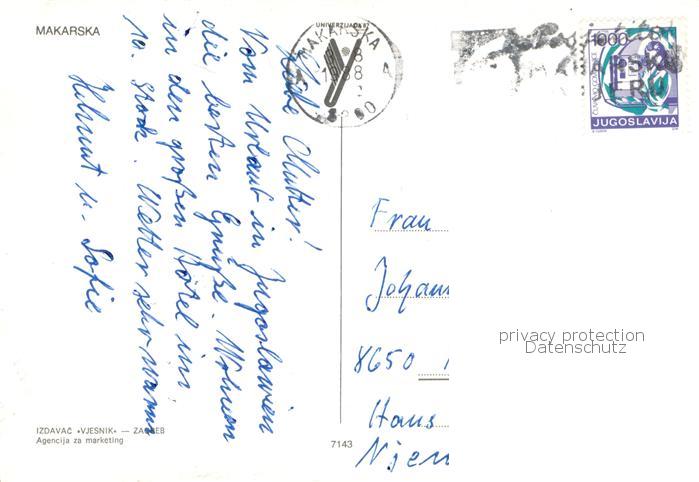 MAKARSKA
Liebe Mutter!
Vom Urlaub in Jugoslawien
die besten Grüße. Wohnen
in den großen Hotel im
10. Stock. Wetter sehr warm
Helmut u. Sofie
UNIVERZIJADE
MAKARSKA
1000
JUGOSLAVIJA
Frau
8650
Haus
Njen
privacy protection
Datenschutz
IZDAVAČ »VJESNIK« — ZAGREB
Agencija za marketing
7143